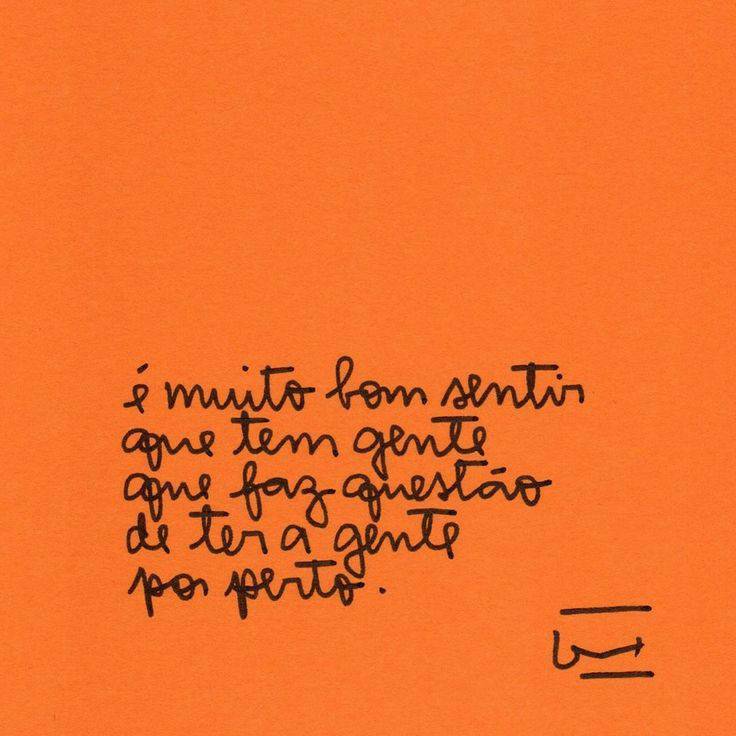 é muito bom sentir
que tem gente
que faz questão
de ter a gente
por perto.